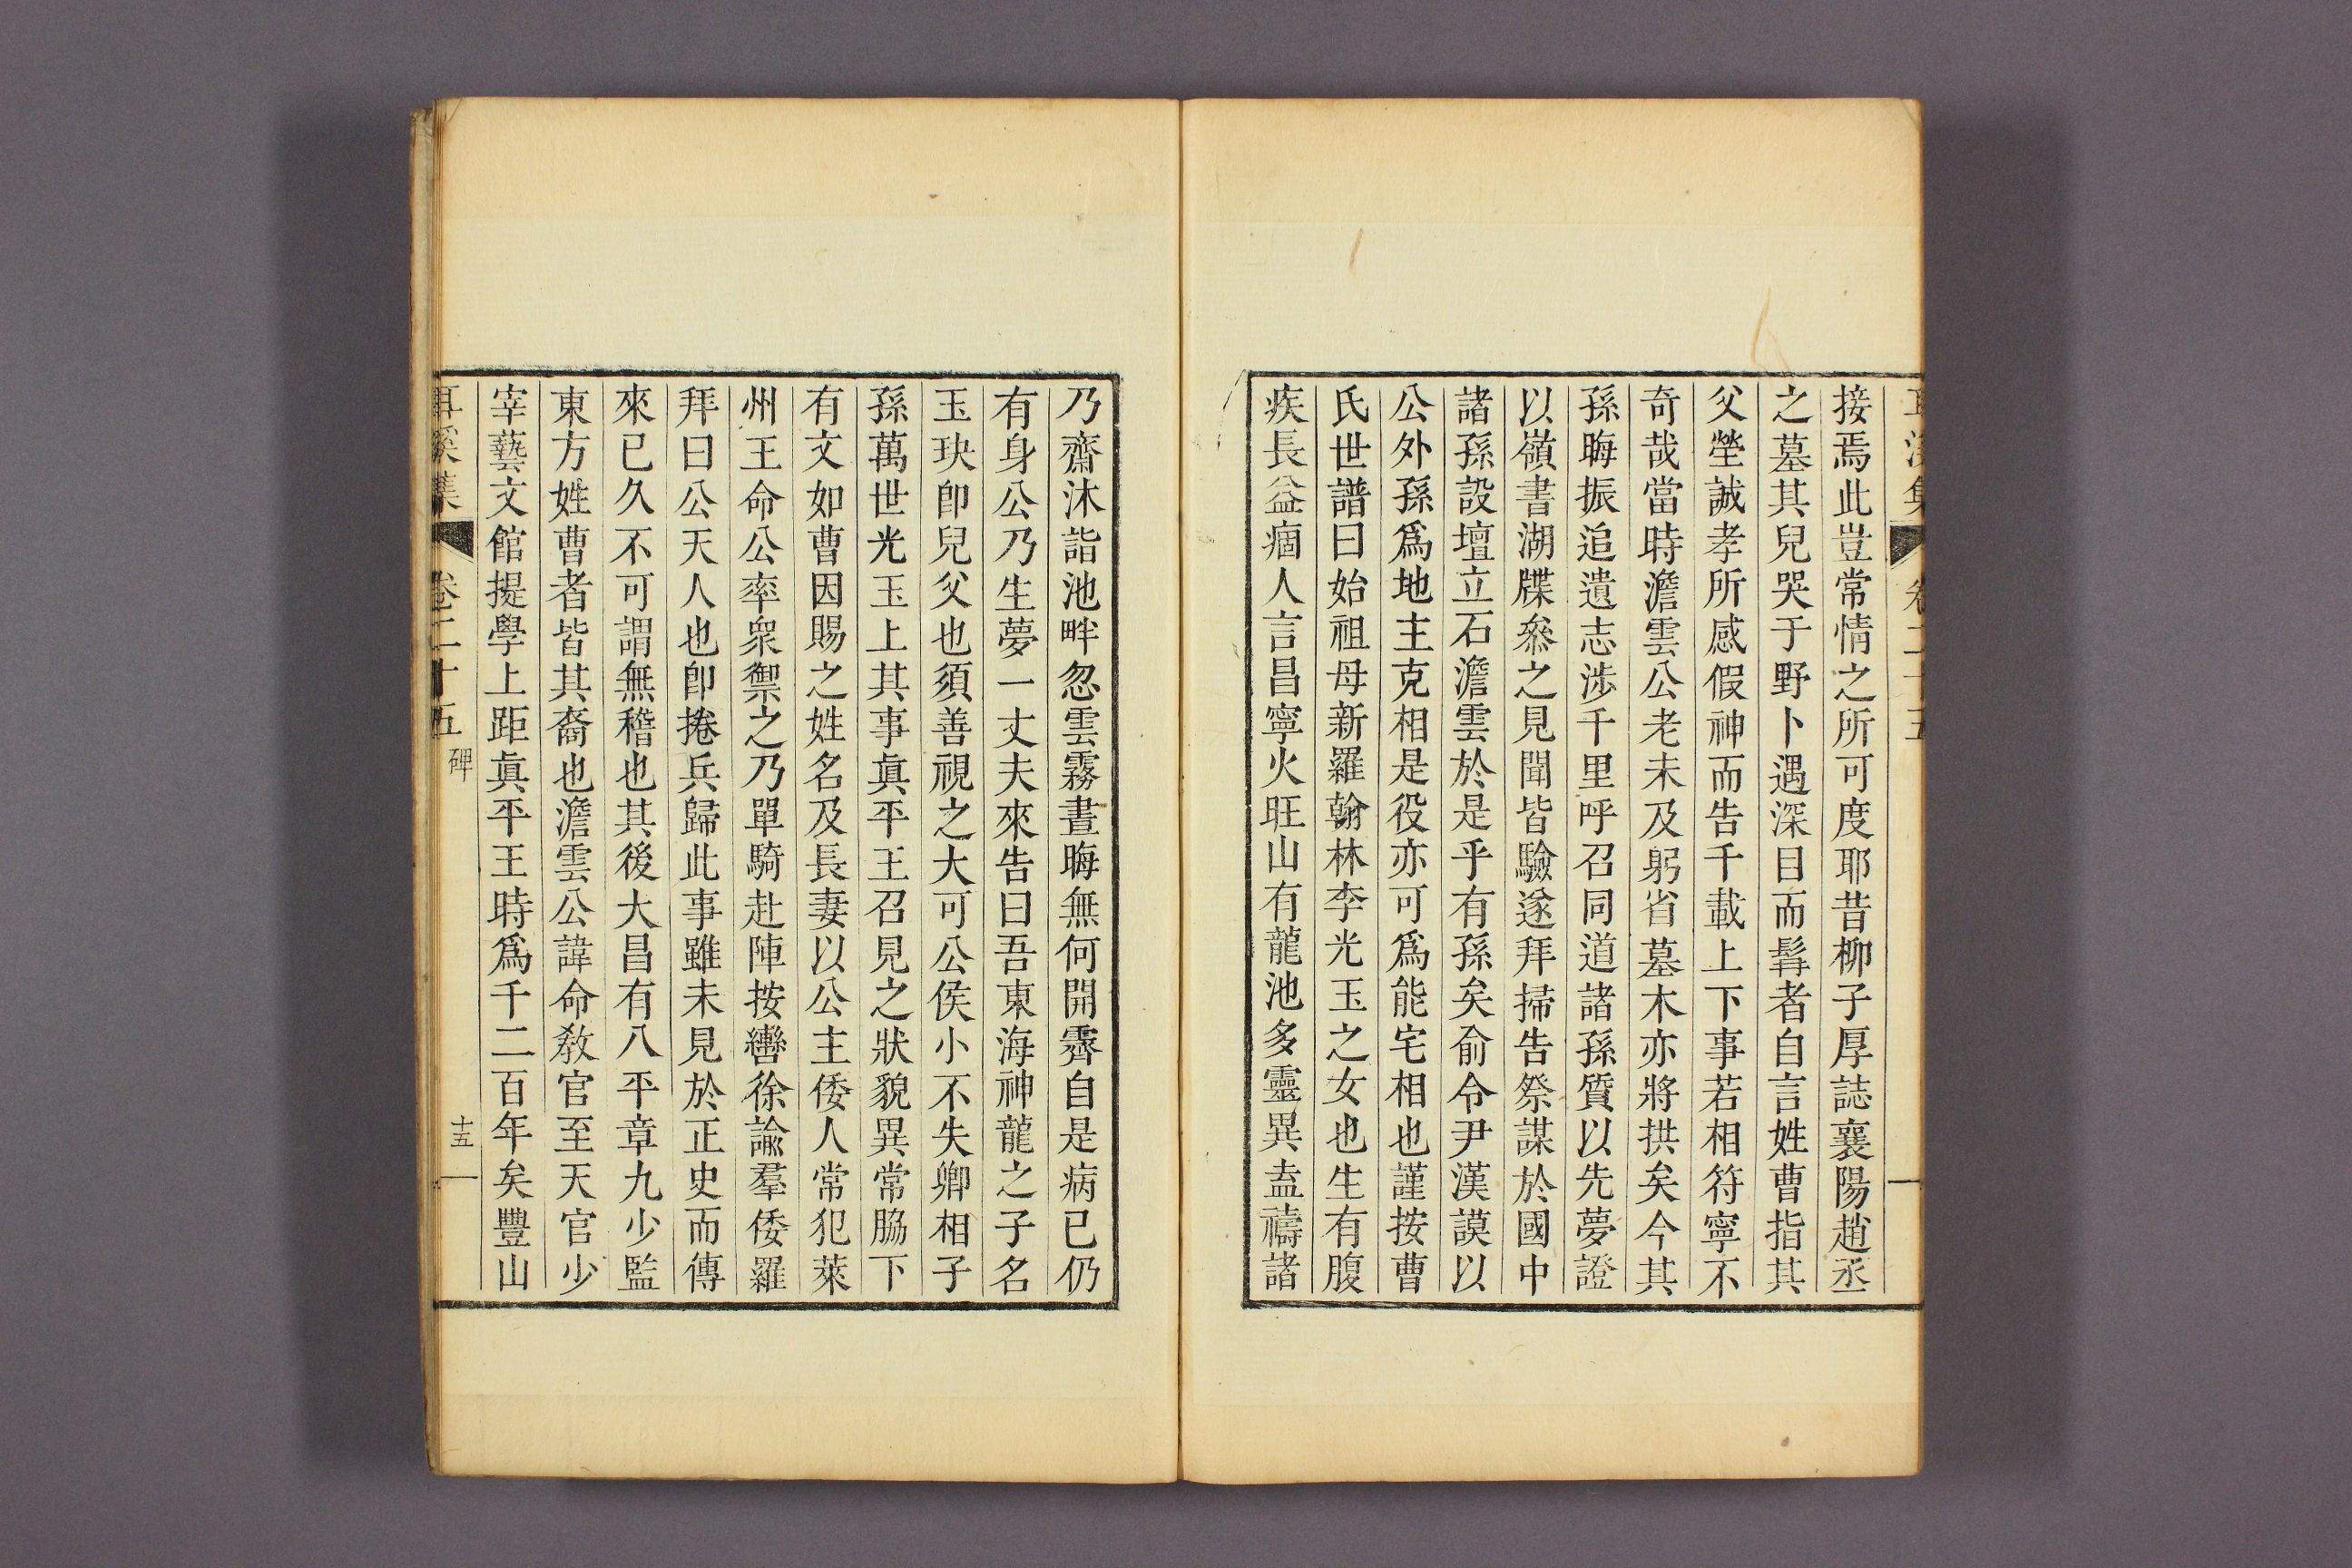 耳溪集 卷二十五
接焉此豈常情之所可度耶昔柳子厚誌襄陽趙丞
之墓其兒哭于野卜遇深目而髯者自言姓曹指其
父塋誠孝所感假神而告千載上下事若相符寧不
奇哉當時澹雲公老未及躬省墓木亦將拱矣今其
孫晦振追遺志涉千里呼召同道諸孫質以先夢證
以嶺書湖牒叅之見聞皆驗遂拜掃告祭謀於國中
諸孫設壇立石澹雲於是乎有孫矣俞令尹漢謨以
公外孫爲地主克相是役亦可爲能宅相也謹按曹
氏世譜曰始祖母新羅翰林李光玉之女也生有腹
疾長益痼人言昌寧火旺山有龍池多靈異盍禱諸
乃齋沐詣池畔忽雲霧晝晦無何開霽自是病已仍
有身公乃生夢一丈夫來告曰吾東海神龍之子名
玉玦卽兒父也須善視之大可公侯小不失卿相子
孫萬世光玉上其事眞平王召見之狀貌異常脇下
有文如曹因賜之姓名及長妻以公主倭人常犯萊
州王命公率衆禦之乃單騎赴陣按轡徐諭羣倭羅
拜曰公天人也卽捲兵歸此事雖未見於正史而傳
來已久不可謂無稽也其後大昌有八平章九少監
東方姓曹者皆其裔也澹雲公諱命敎官至天官少
宰藝文館提學上距眞平王時爲千二百年矣豐山
耳溪集 卷二十五 碑 十五